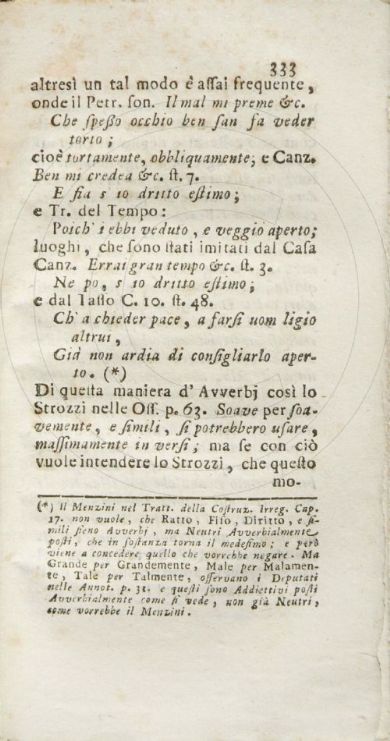 333
altresì un tal modo è assai frequente,
onde il Petr. son. Il mal mi preme &c.
Che spesso occhio ben san fa veder
torto;
cioè tortamente, obbliquamente; e Canz.
Ben mi credea &c. st. 7.
E fia s' io dritto estimo;
e Tr. del Tempo:
Poich' i ebbi veduto, e veggio aperto;
luoghi, che sono stati imitati dal Casa
Canz. Errai gran tempo &c. st. 3.
Ne po, s' io dritto estimo;
e dal Tasso C. 10. st. 48.
Ch' a chieder pace, a farsi uom ligio
altrui,
Già non ardia di consigliarlo aper-
to. (*)
Di questa maniera d' Avverbj così lo
Strozzi nelle Oss. p. 63. Soave per soa-
vemente, e simili, si potrebbero usare,
massimamente in versi; ma se con ciò
vuole intendere lo Strozzi, che questo
mo-
(*) Il Menzini nel Tratt. della Costruz. Irreg. Cap.
17. non vuole, che Ratto, Fiso, Diritto, e si-
mili sieno Avverbj, ma Neutri Avverbialmente
posti, che in sostanza torna il medesimo; e però
viene a concedere quello che vorrebbe negare. Ma
Grande per Grandemente, Male per Malamen-
te, Tale per Talmente, osservano i Deputati
nelle Annot. p. 31. e questi sono Addiettivi posti
Avverbialmente come si vede, non già Neutri,
come vorrebbe il Menzini.